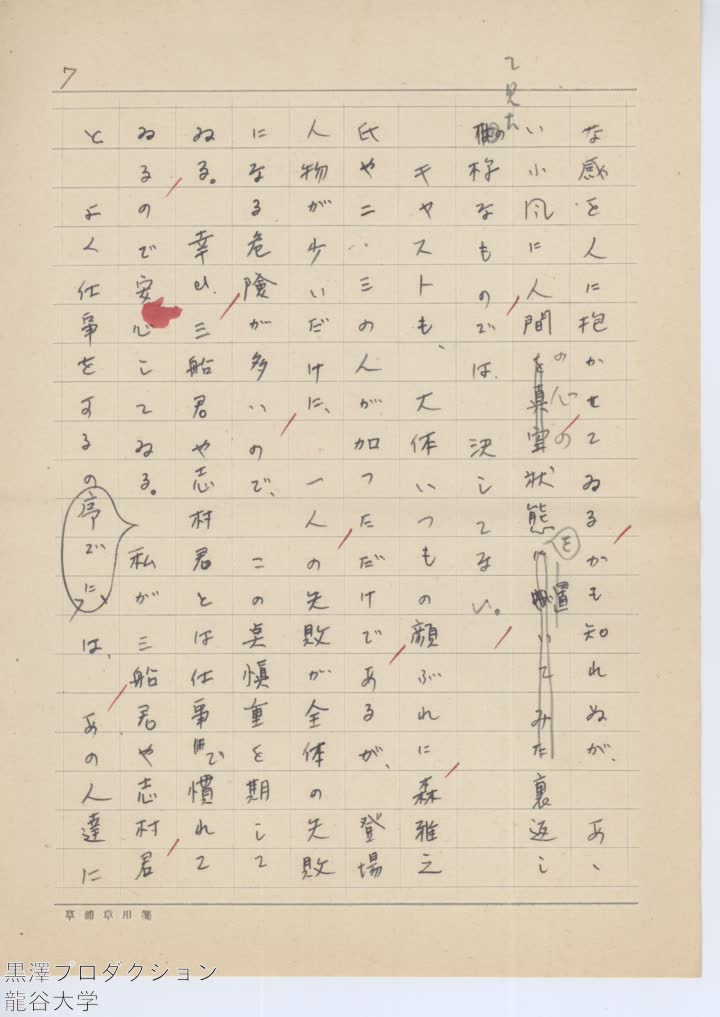 7
な感を人に抱かせてゐるかも知れぬが、あゝ
い小風に人間の心の真空状態を置いてみた裏返し
て見た
様なものでは、決してない。
キヤストも、大体いつもの顔ぶれに森雅之
氏や二、三の人が加つただけであるが、登場
人物が少いだけに、一人の失敗が全体の失敗
になる危険が多いので、この点慎重を期して
ゐる。幸ひ、三船君や志村君とは仕事で慣れて
ゐるので安心してゐる。私が三船君や志村君
とよく仕事をするの序でには、あの人達に
黒澤プロダクション
龍谷大学